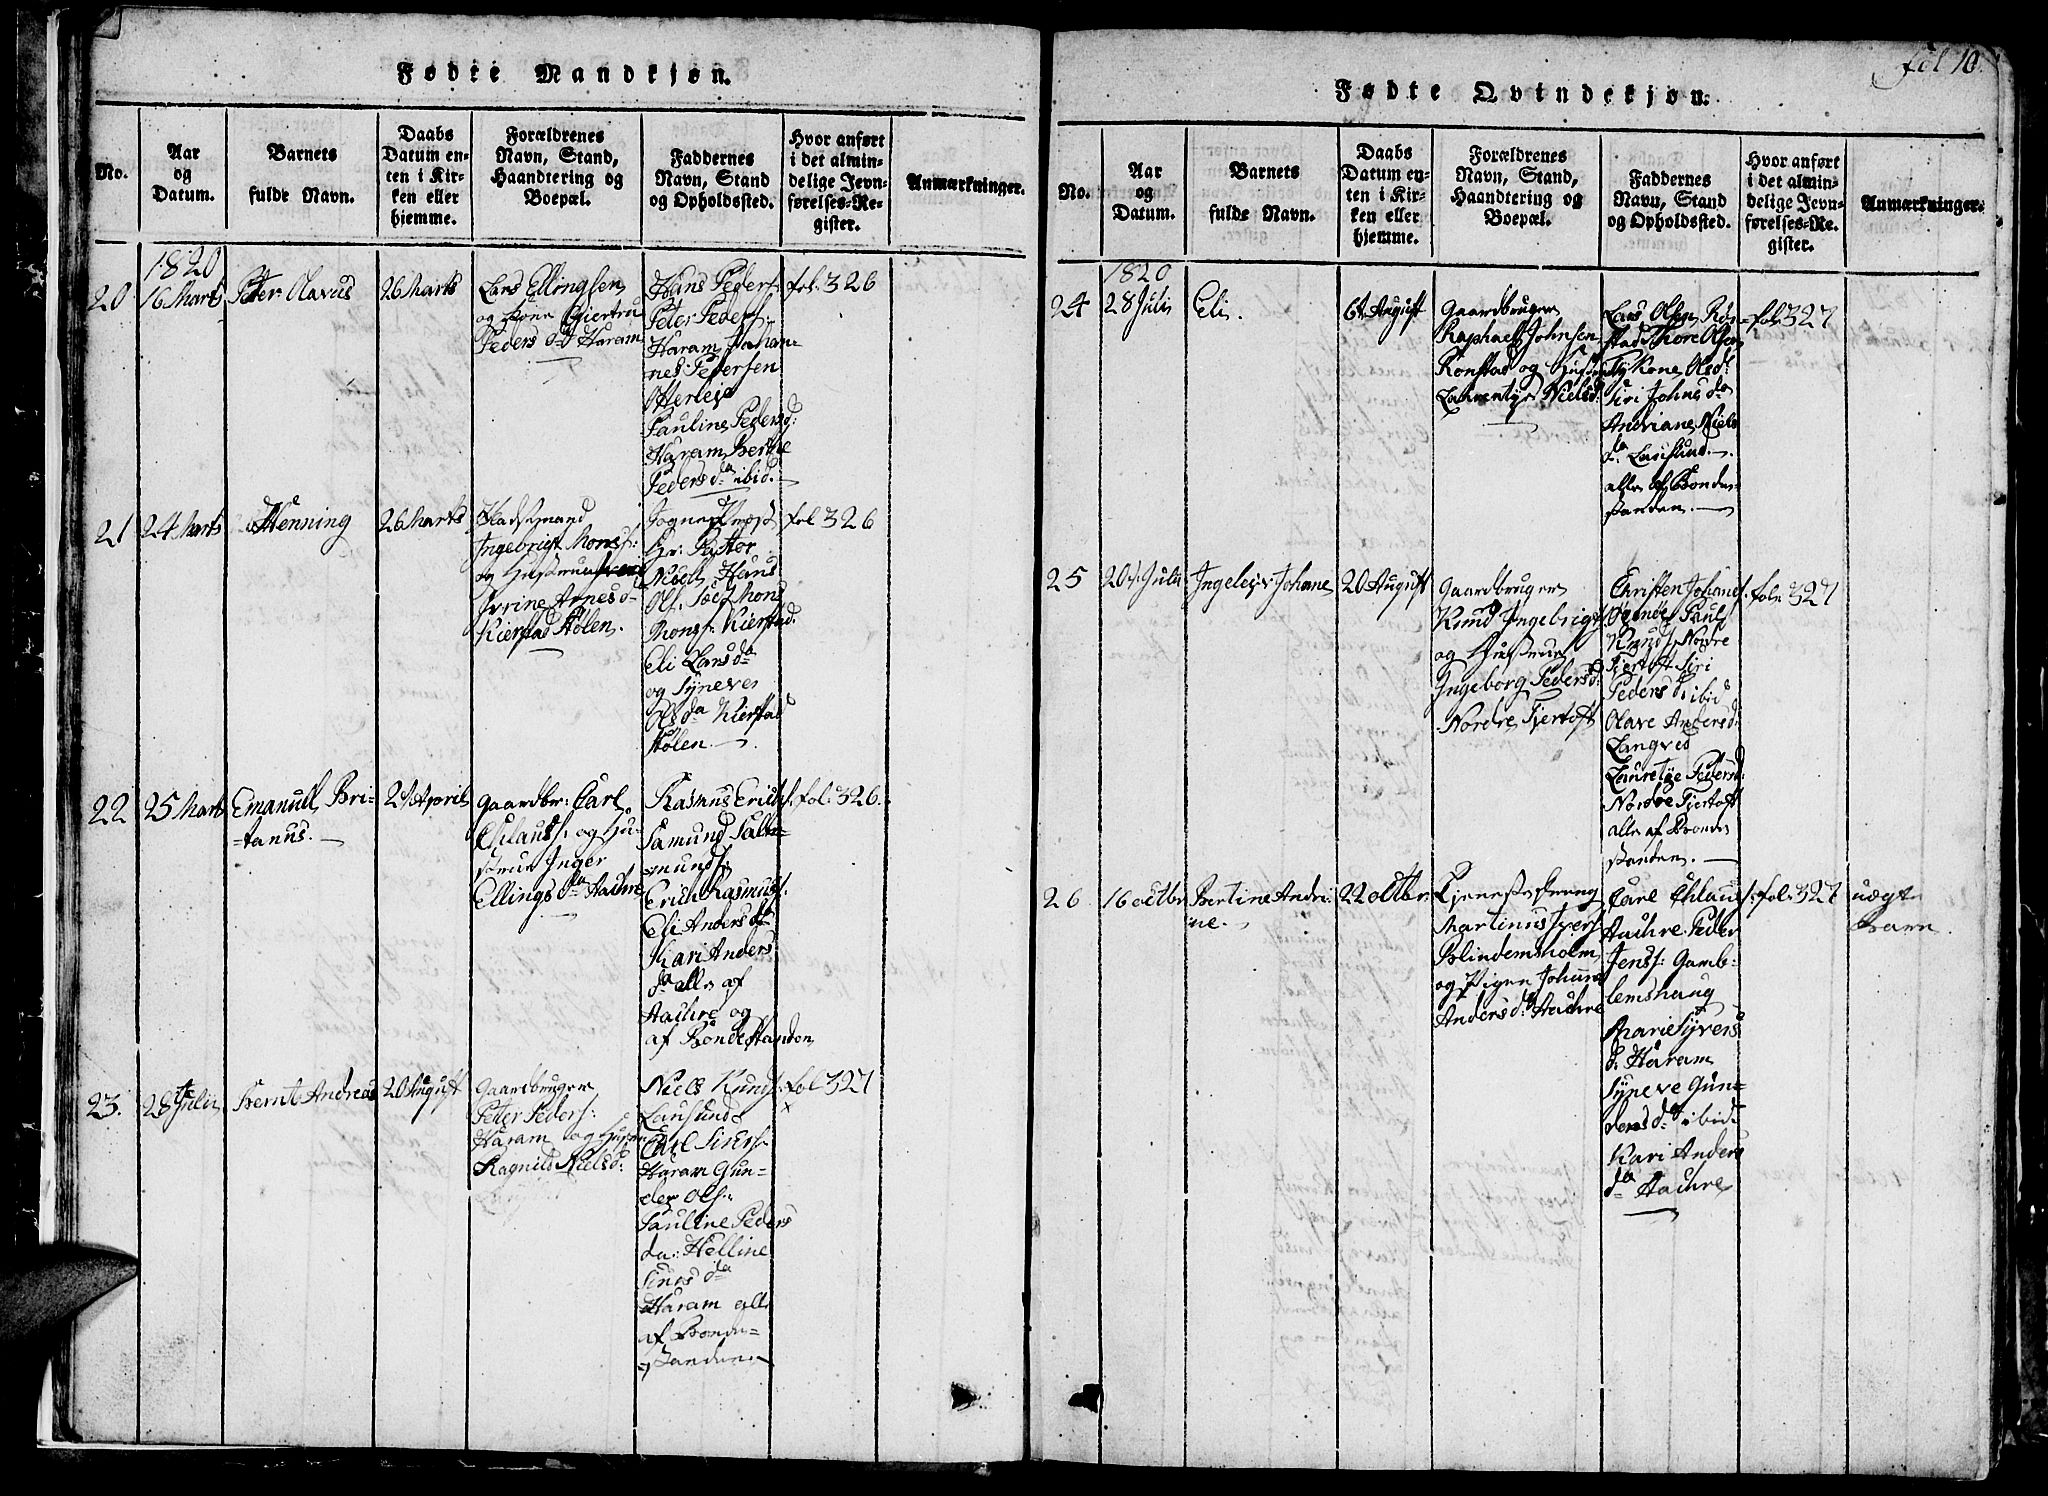 Fødte Mandkjøn.
No.
Aar
og
Datum.
Barnets
fulde Navn.
Daabs
Datum en-
ten i Kir-
ken eller
hjemme.
Forældrenes
Navn, Stand,
Haandtering og
Boepæl.
Faddernes
Navn, Stand
og Opholdssted.
Hvor anført
i det almin-
delige Jevn-
førelses-Re-
gister.
Anmærkninger.
1820
20
16 Marts
Peter Olavus
26 Marts
Lars Ellingsen
og Kone Giertru
Peders D Haram
Hans Peders:
Peter Peders:
Haram, Johan-
nes Pedersen
Otterlei
Pauline Pedersd:
Haram, Berthe
Peders da ibid.
fol. 326
21
24 Marts
Henning
26 Marts
Ingebrigt Mons:
og Hustrue
Arnesd
Kierstad Holen.
Hr: Pastor
Hans
Mons: Kierstad.
Eli Larsda
og Syneve
Ols da Kierstad
Holen.
fol 326
22
25 Marts
Emanuel Bri-
-tanus.
2 April
Gaardbr: Carl
Ehlauss: og Hu-
strue Inger
Ellings da Aachre
Rasmus Erichs:
Samund Salle-
munds
Erich Rasmuss:
Eli Anders da
Kari Anders
da alle af
Aachre og
af Bondestanden
fol. 326.
23.
28 Julii
Bernt Andreas
20 August
Gaardbruger
Peter Peders:
Haram og Hustru
Ragnild Nielsd:
Niels Knuds:
Lausund
Carl Sivers:
Haram Gun-
der Ols:
Pauline Peders
da: Helline
Siversda
Haram alle
af Bonde-
standen
fol 327
x
fol 10.
Fødte Qvindekjøn.
No.
Aar
og
Datum.
Barnets
fulde Navn.
Daabs
Datum en-
ten i Kir-
ken eller
hjemme.
Forældrenes
Navn, Stand,
Haandtering og
Boepæl.
Faddernes
Navn, Stand
og Opholdssted.
Hvor anført
i det almin-
delige Jevn-
førelses-Re-
gister.
Anmærkninger.
1820
24
28 Juli
Eli.
6t August
Gaardbruger
Raphael Johnsen
Rønstad og Hustrue
Laurentze Nielsd:
Lars Olsen Røn-
stad Thore Olsen
Olsd:
Siri Johns da
Andriane Niels
da Lausund.
alle af Bonde-
standen.
fol 327
25
20 Julii
Ingeleiv Johane
20 August
Gaardbruger
Knud Ingebrigts
og Hustrue
Ingeborg Pedersd:
Nordre Fjertoft
Christen Johans:
Ogsnde Paul
Knuds Nordre
Fjertoft Siri
Peders d. ibid
Olave Andersd:
Langved
Lauretze Pedersd:
Nordre Fjertoft
alle af Bonde-
standen.
fol. 327
26
16 octbr
Bertine Andri-
ne.
22 octbr.
Tjenestedreng
Martinus Ivers:
Blindemsholm
og Pigen Johane
Andersd: Aachre
Carl Ehlaus:
Aachre, Peder
Jenss: Gamb-
lemshaug
Marie Syvers
d: Haram
Syneve Gun-
dersda ibid
Kari Anders
da Aachre
fol. 327
uægte
Barn.